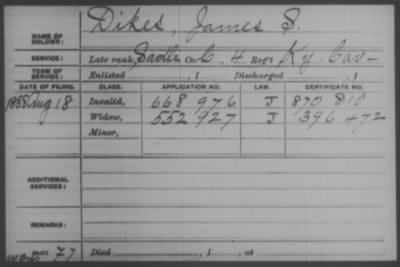 Dikes, James S.
NAME OF SOLDIER:
SERVICE: Late rank, Sadlr Co. C, 4 Reg't Ky. Cav-
TERM OF SERVICE: Enlisted , 1 Discharged , 1
DATE OF FILING. CLASS. APPLICATION NO. LAW. CERTIFICATE NO.
Aug 18 Invalid, 668 976 J 870 810
Widow, 552 927 J 396 472
Minor,
ADDITIONAL SERVICES:
REMARKS:
77 Died , 1 , at